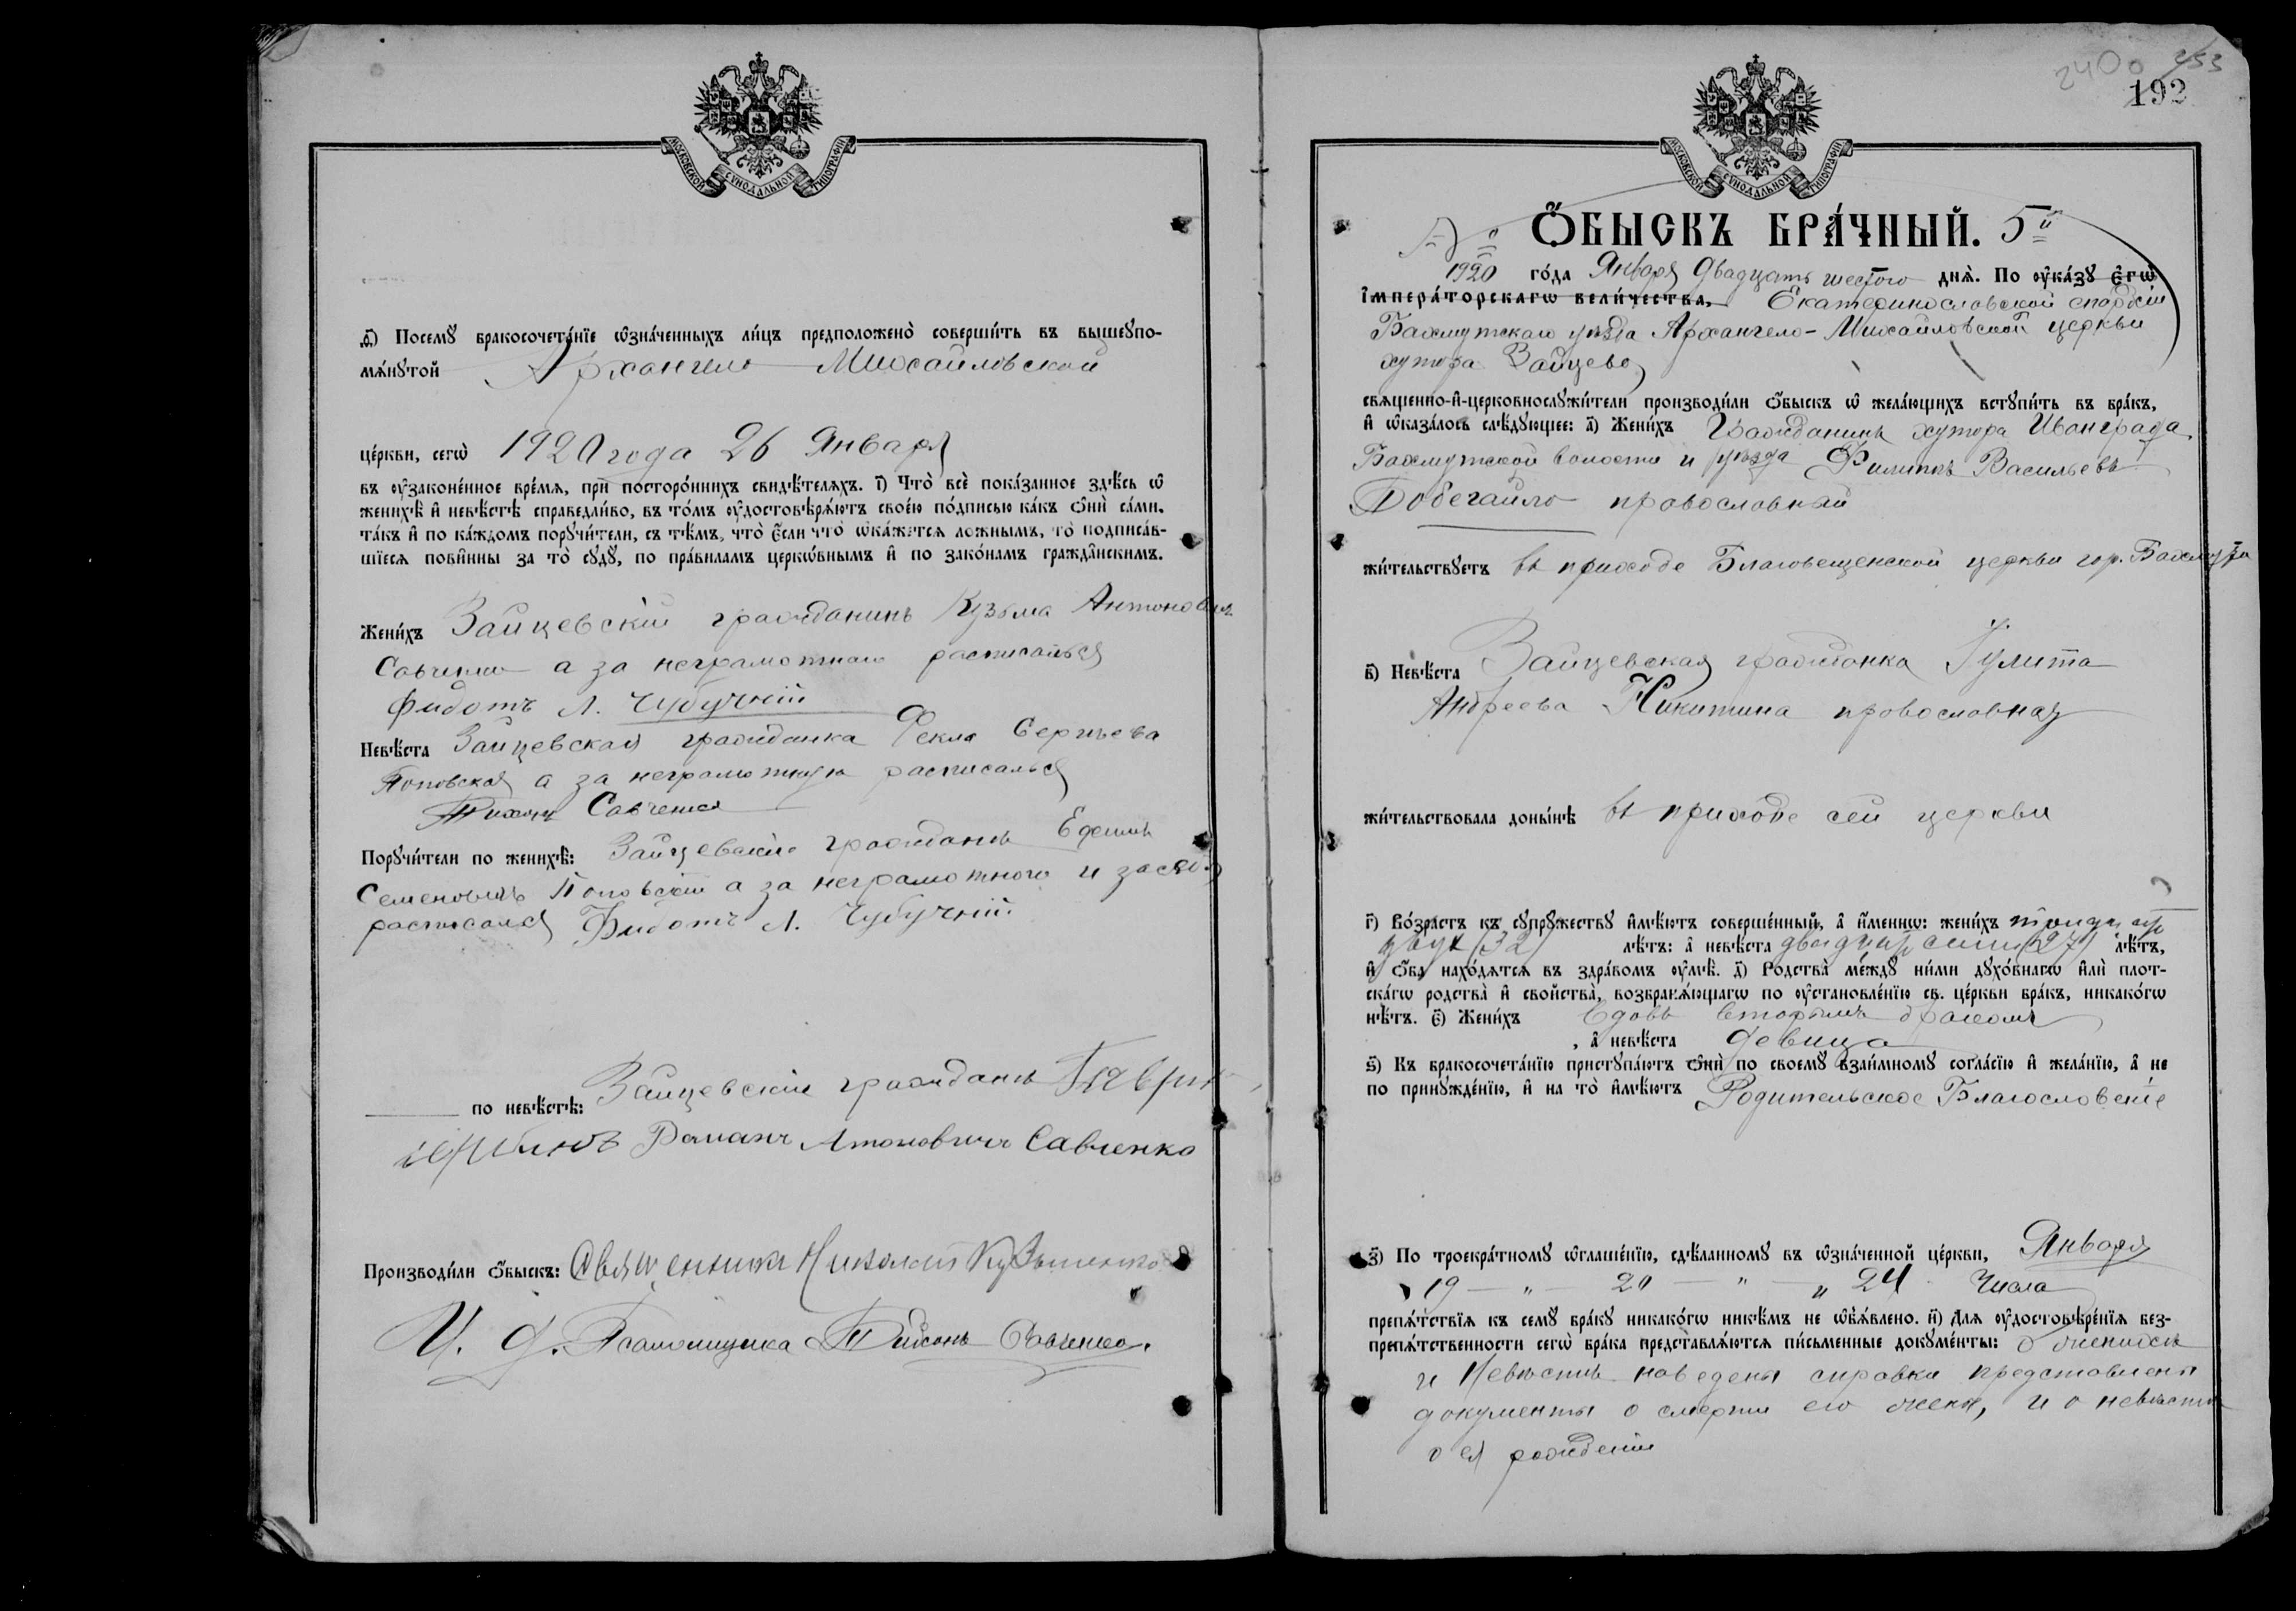 МОСКОВСКОЙ СѴНОДАЛЬНОЙ ТИПОГРАФІИ
ѳ҃) Посемꙋ бракосочета́нїе ѡ҆зна́ченныхъ ли́цъ предположено̀ соверши́ть въ вышеупо-
мѧ́нꙋтой Архангело Михайловской
це́ркви, сегѡ̀ 1920 года 26 Января
въ ᲂу҆законе́нное вре́мѧ, прѝ посторо́ннихъ свидѣ́телѧхъ. і҃) Что̀ всѐ пока́занное здѣ́сь ѡ҆
женихѣ̀ и҆ невѣ́стѣ справедли́во, въ то́мъ ᲂу҆достовѣрѧ́ютъ свое́ю по́дписью ка́къ ѻ҆нѝ са́ми,
та́къ и҆ по ка́ждомъ порꙋчи́тели, съ тѣ́мъ, что̀ є҆́сли что̀ ѡ҆ка́жетсѧ ло́жнымъ, то̀ подписа́в-
шїесѧ пови́нны за то̀ сꙋдꙋ̀, по пра́виламъ церкѡ́внымъ и҆ по зако́намъ гражда̑нскимъ.
Жени́хъ Зайцевскій гражданинъ Кузьма Антоновичъ
Савченко а за неграмотнаго расписался
Фидотъ Л. Чубучній
Невѣ́ста Зайцевская гражданка Фекла Сергѣева
Поповская а за неграмотную расписалься
Тихонъ Савченко
Порꙋчи́тели по женихѣ̀: Зайцевскіе граждане Ефимъ
Семеновичъ Поповскій а за неграмотного и за себя
расписался Фидотъ Л. Чубучній
по невѣ́стѣ: Зайцевскіе граждане
Романъ Антоновичъ Савченко
Производи́ли ѻ҆́быскъ: Священникъ Николай Кузьменко
И. д. Псаломщика Тихонъ Савченко.
2400 253
192
МОСКОВСКОЙ СѴНОДАЛЬНОЙ ТИПОГРАФІИ
Ѻ҆́БЫСКЪ БРА́ЧНЫЙ. 5й
1920 го́да Января двадцать шестого днѧ̀. По ᲂу҆ка́зꙋ є҆гѡ̀
і҆мпера́торскагѡ вели́чества, Екатеринославской епархіи
Бахмутскаго уѣзда Архангело-Михайловской церкви
хутора Зайцево
свѧще́нно-и҆-церковнослꙋжи́тели производи́ли ѻ҆́быскъ ѡ҆ жела́ющихъ встꙋпи́ть въ бра́къ,
и҆ ѡ҆каза́лось слѣ́дꙋющее: а҃) Жени́хъ Гражданинъ хутора Иванграда
Бахмутской волости и уѣзда Филиппъ Васильевъ
Побегайло православный
жи́тельствꙋетъ въ приходе Благовещенской церкви гор. Бахмута
в҃) Невѣ́ста Зайцевская гражданка Іулита
Андреева Никитина православная
жи́тельствовала доны́нѣ въ приходе сей церкви
г҃) Во́зрастъ къ сꙋпрꙋ́жествꙋ и҆мѣ́ютъ соверше́нный, а҆ и҆́меннѡ: жени́хъ тридцать
двухъ (32) лѣ́тъ: а҆ невѣ́ста двадцать семи (27) лѣ́тъ,
и҆ ѻ҆́ба нахо́дѧтсѧ въ здра́вомъ ᲂу҆мѣ̀. д҃) Родства̀ ме́ждꙋ ни́ми дꙋхо́внагѡ и҆лѝ плот-
ска́гѡ родства̀ и҆ сво́йства̀, возбранѧ́ющагѡ по ᲂу҆становле́нїю св. це́ркви бра́къ, никако́гѡ
нѣ́тъ. є҃) Жени́хъ вдовъ вторымъ бракомъ
, а҆ невѣ́ста девица
ѕ҃) Къ бракосочета́нїю пристꙋпа́ютъ ѻ҆нѝ по своемꙋ̀ взаи́мномꙋ согла́сїю и҆ жела́нїю, а҆ не
по принꙋжде́нїю, и҆ на то̀ и҆мѣ́ютъ Родительское Благословеніе
з҃) По троекра́тномꙋ ѡ҆глаше́нїю, сдѣ́ланномꙋ въ ѡ҆зна́ченной це́ркви, Января
19 — „ — 20 — „ — „ 24 Числа
препѧ́тствїѧ къ семꙋ̀ бра́кꙋ никако́гѡ никѣ́мъ не ѡ҆б̾ѧ́влено. и҃) Длѧ ᲂу҆достовѣре́нїѧ без-
препѧ́тственности сегѡ̀ бра́ка представлѧ́ютсѧ пи́сьменные докꙋме́нты: о женихѣ
и Невѣстѣ наведены справки представлены
документы о смерти его жены, и о невѣстѣ
о ея рожденіи